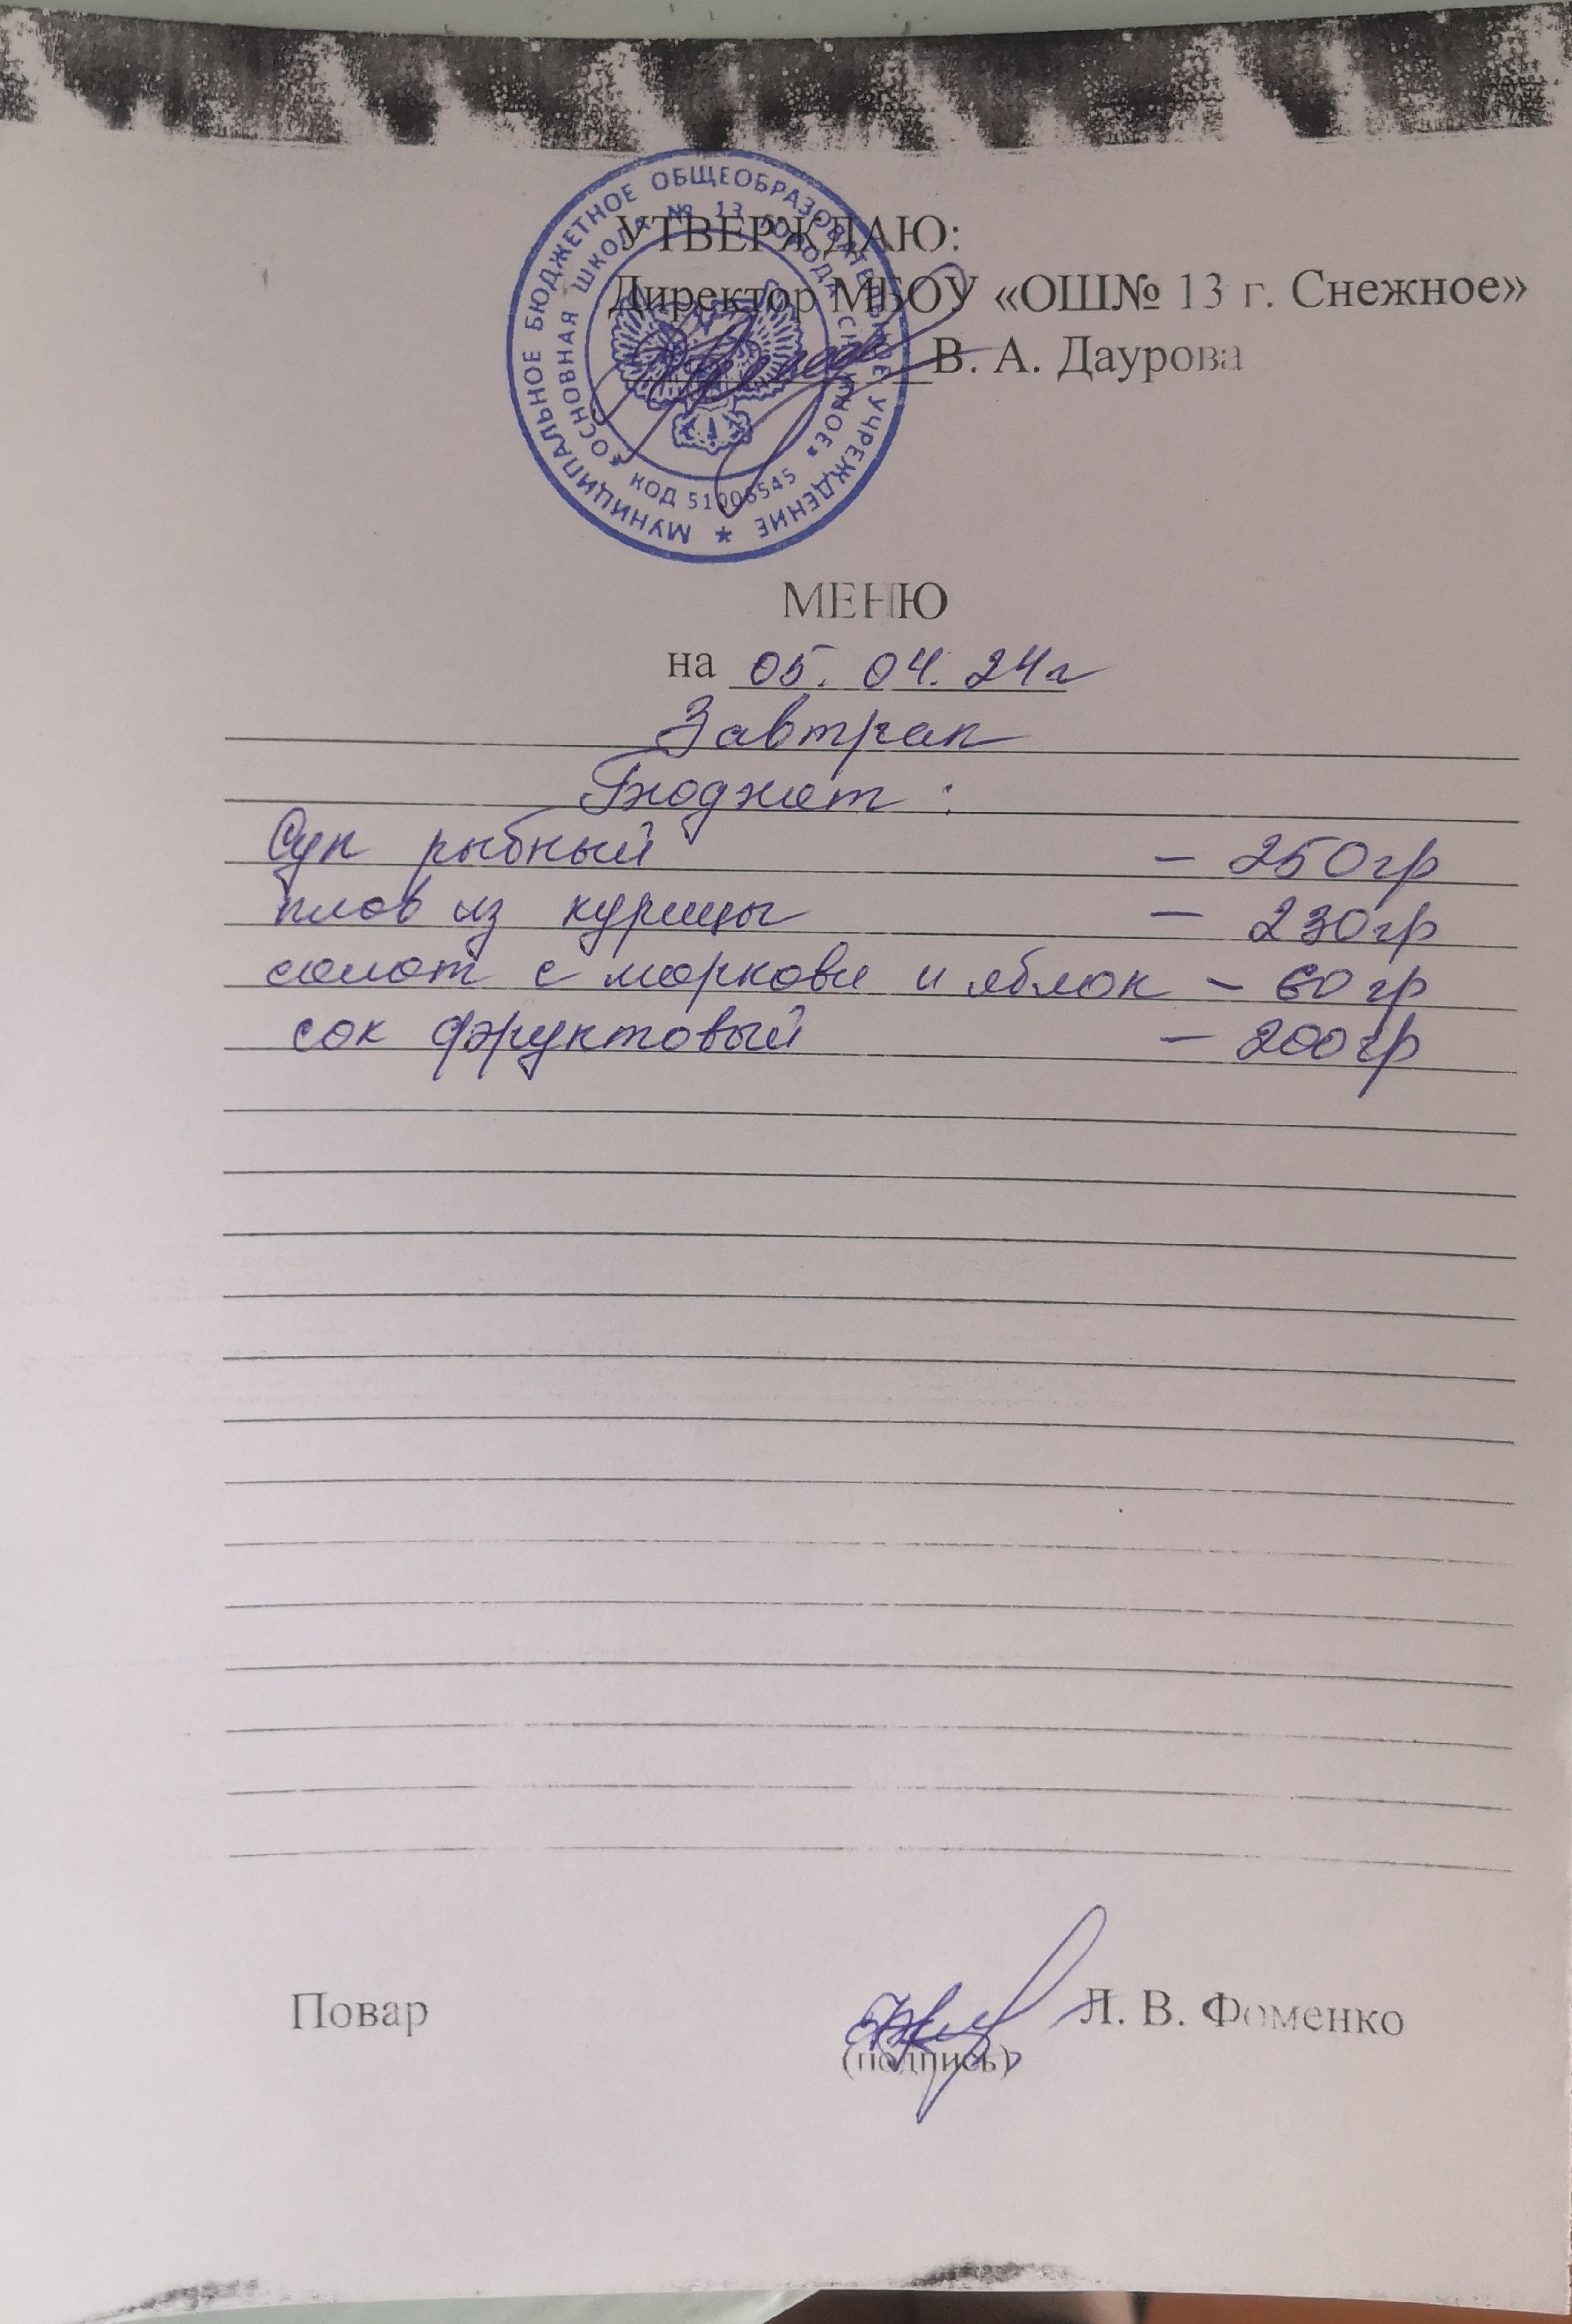 МУНИЦИПАЛЬНОЕ БЮДЖЕТНОЕ ОБЩЕОБРАЗОВАТЕЛЬНОЕ УЧРЕЖДЕНИЕ
«ОСНОВНАЯ ШКОЛА № 13 ГОРОДА СНЕЖНОЕ»
КОД 51006545
УТВЕРЖДАЮ:
Директор МБОУ «ОШ№ 13 г. Снежное»
В. А. Даурова
МЕНЮ
на 05. 04. 24г
Завтрак
Бюджет :
Суп рыбный - 250гр
плов из курицы - 230гр
салат с моркови и яблок - 60гр
сок фруктовый - 200гр
Повар Л. В. Фоменко
(подпись)